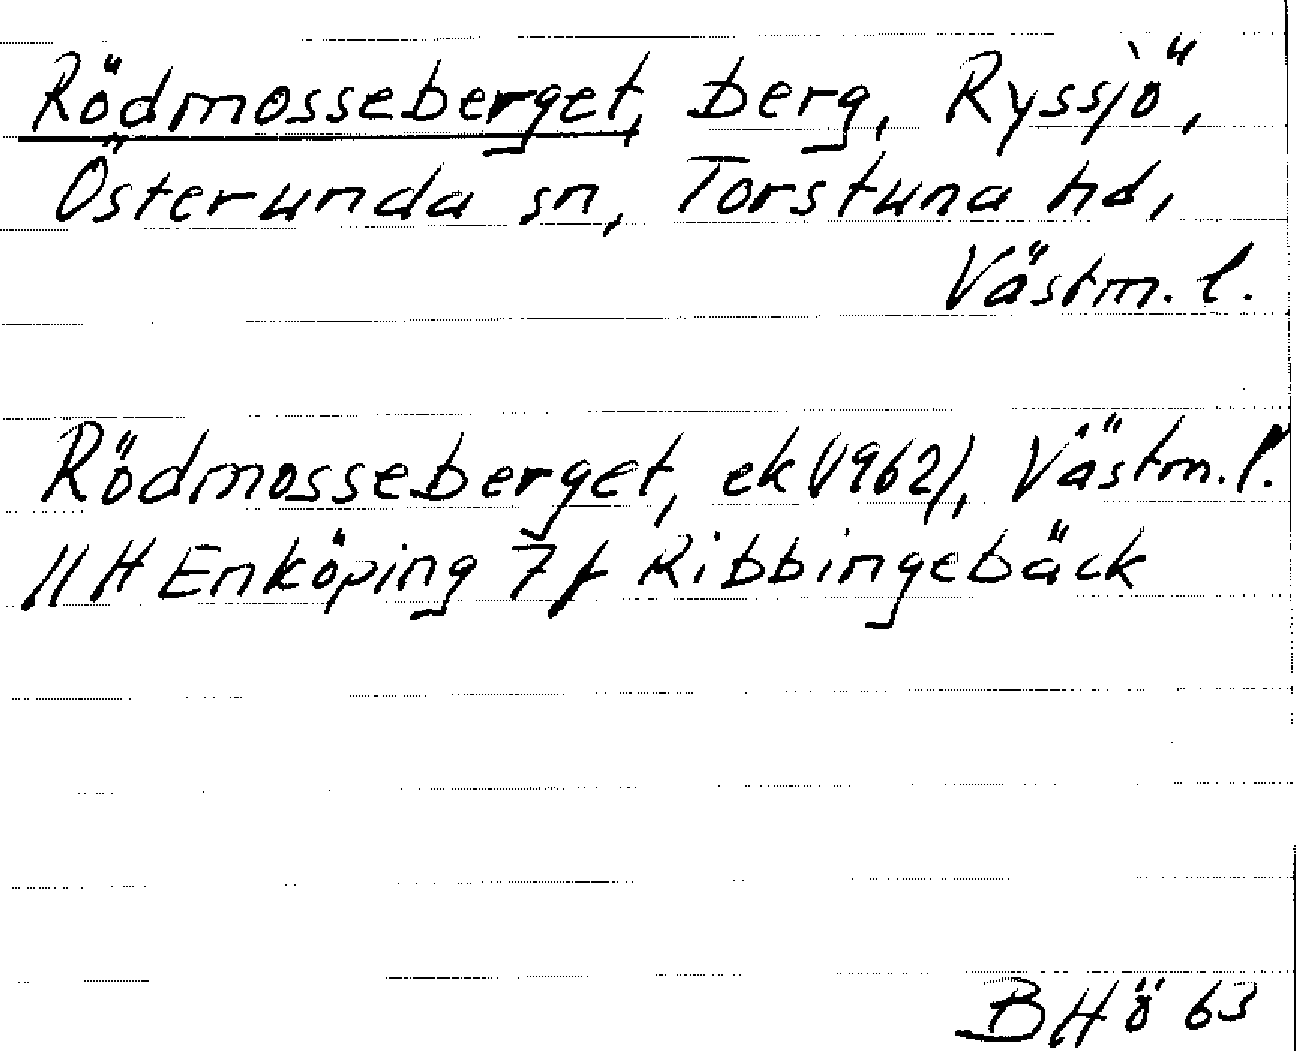 Rödmosseberget, berg, Ryssjö,
Österunda sn, Torstuna hd,
Västm. l.
Rödmosseberget, ek (1962), Västm. l.
11 H Enköping 7 f Ribbingebäck
BHö 63